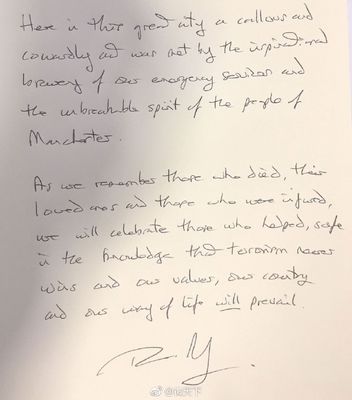 Here in this great city a callous and
cowardly act was met by the inspirational
bravery of our emergency services and
the unbreakable spirit of the people of
Manchester.
As we remember those who died, their
loved ones and those who were injured,
we will celebrate those who helped, safe
in the knowledge that terrorism never
wins and our values, our country
and our way of life will prevail.